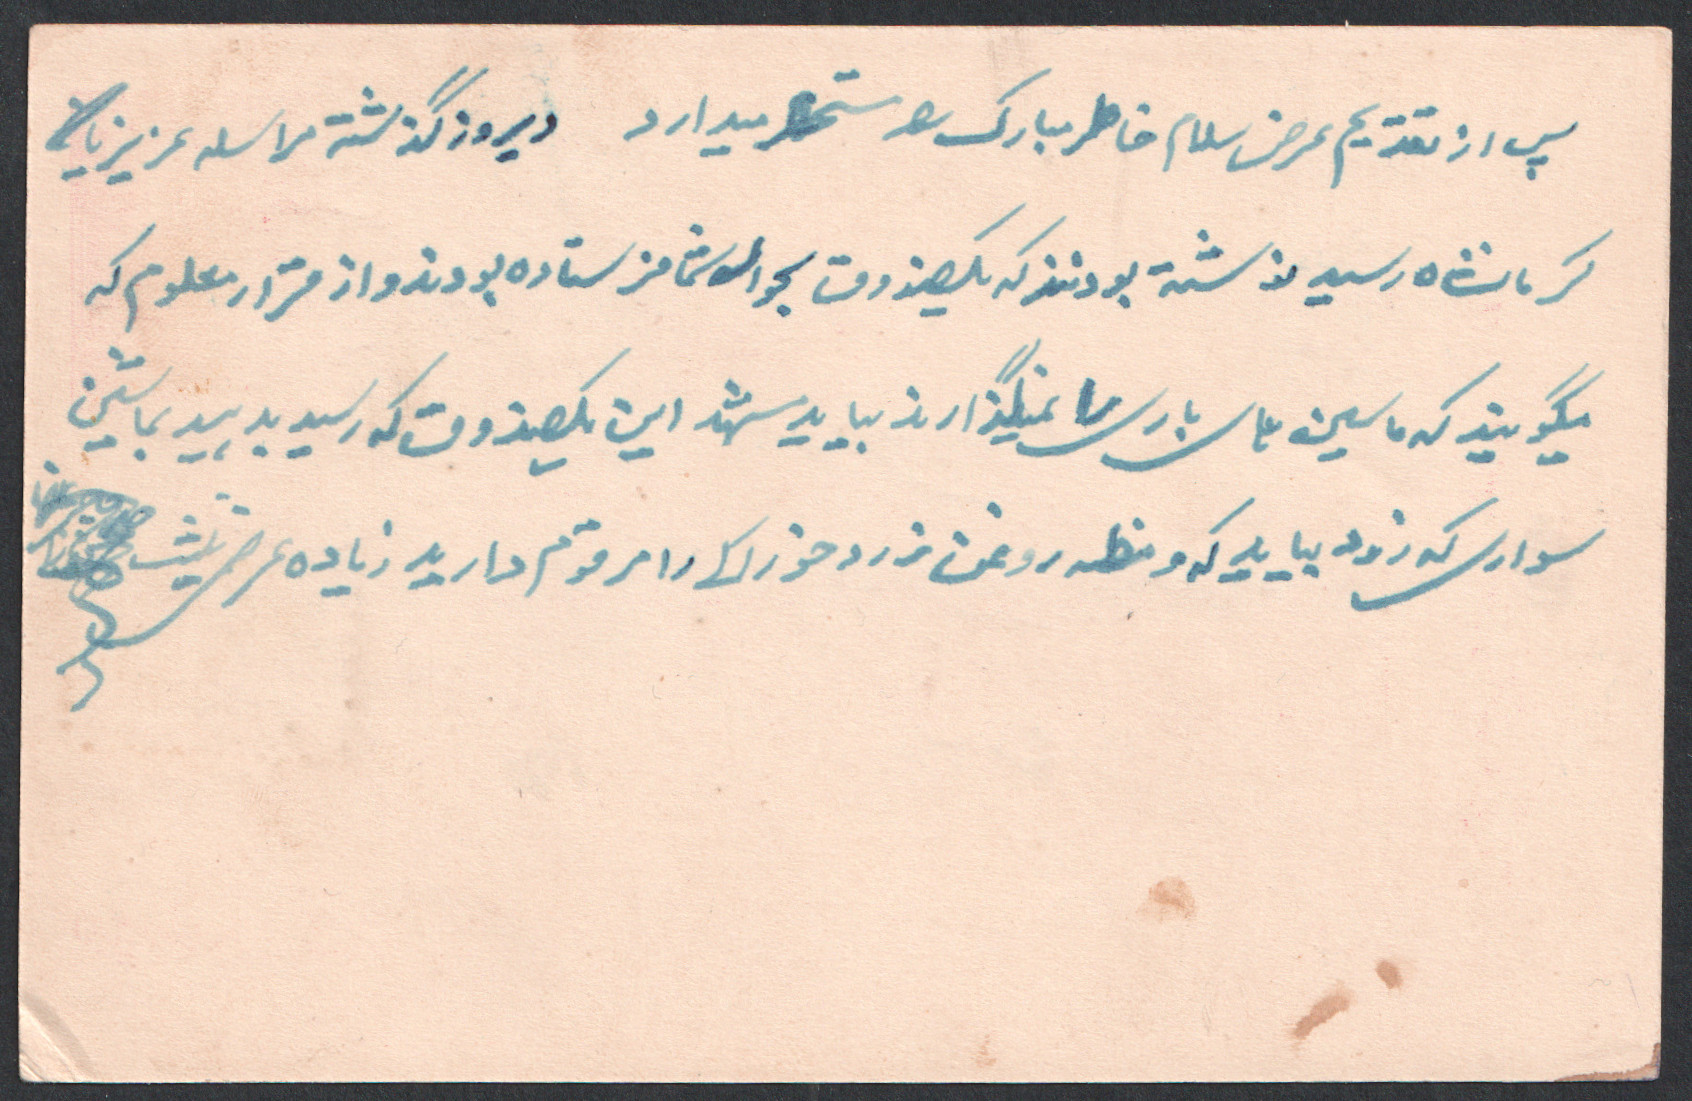 پس از تقدیم عرض سلام خاطر مبارک مستحضر میدارد دیروز گذشته مراسله عزیز
کرمانشاه رسید نوشته بودند که یکصندوق بحواله شما فرستاده بودند و از قرار معلوم که
میگویند که ماشین های باری را نمیگذارند بیاید مشهد این یکصندوق که رسید بدهید بماشین
سواری که زود بیاید که و مظنه روغن زرد خوراکی را مرقوم دارید زیاده عرضی نیست